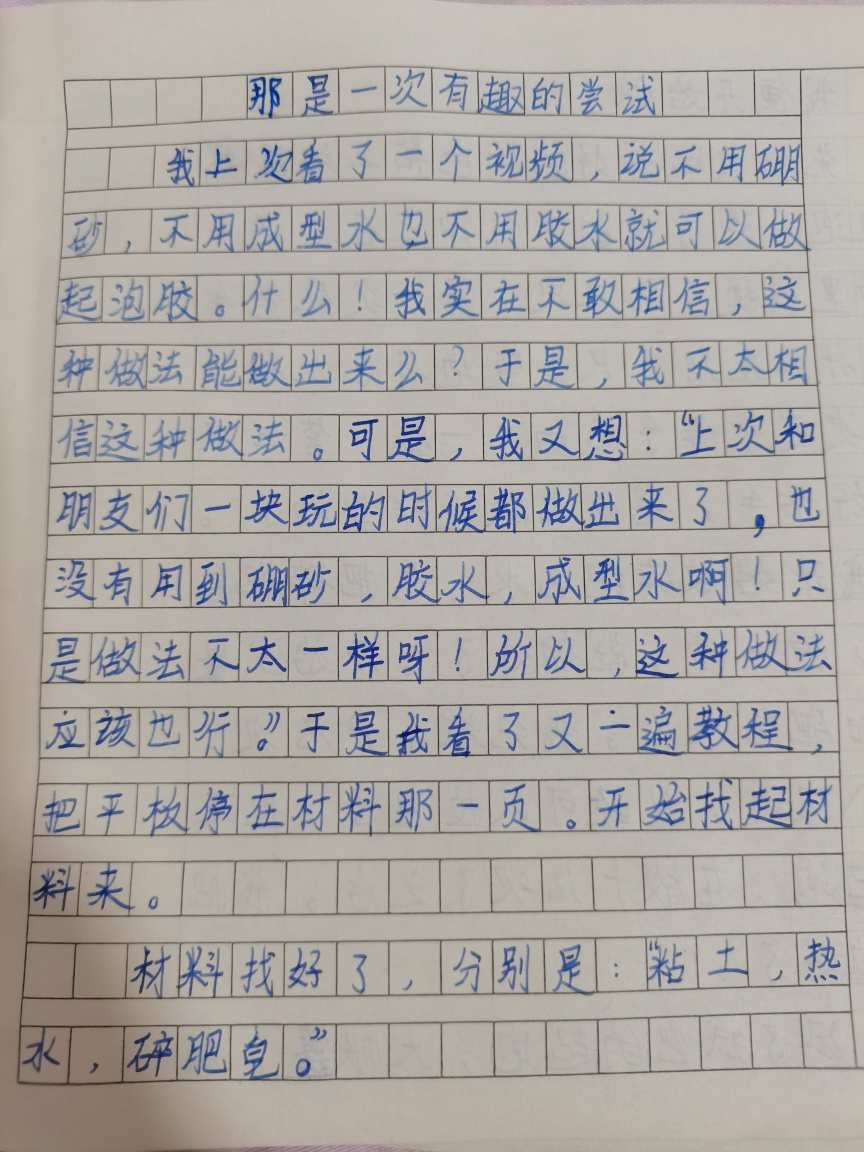 那是一次有趣的尝试
我上次看了一个视频，说不用硼
砂，不用成型水也不用胶水就可以做
起泡胶。什么！我实在不敢相信，这
种做法能做出来么？于是，我不太相
信这种做法。可是，我又想：“上次和
朋友们一块玩的时候都做出来了，也
没有用到硼砂，胶水，成型水啊！只
是做法不太一样呀！所以，这种做法
应该也行。”于是我看了又一遍教程，
把平板停在材料那一页。开始找起材
料来。
材料找好了，分别是：“粘土，热
水，碎肥皂。”